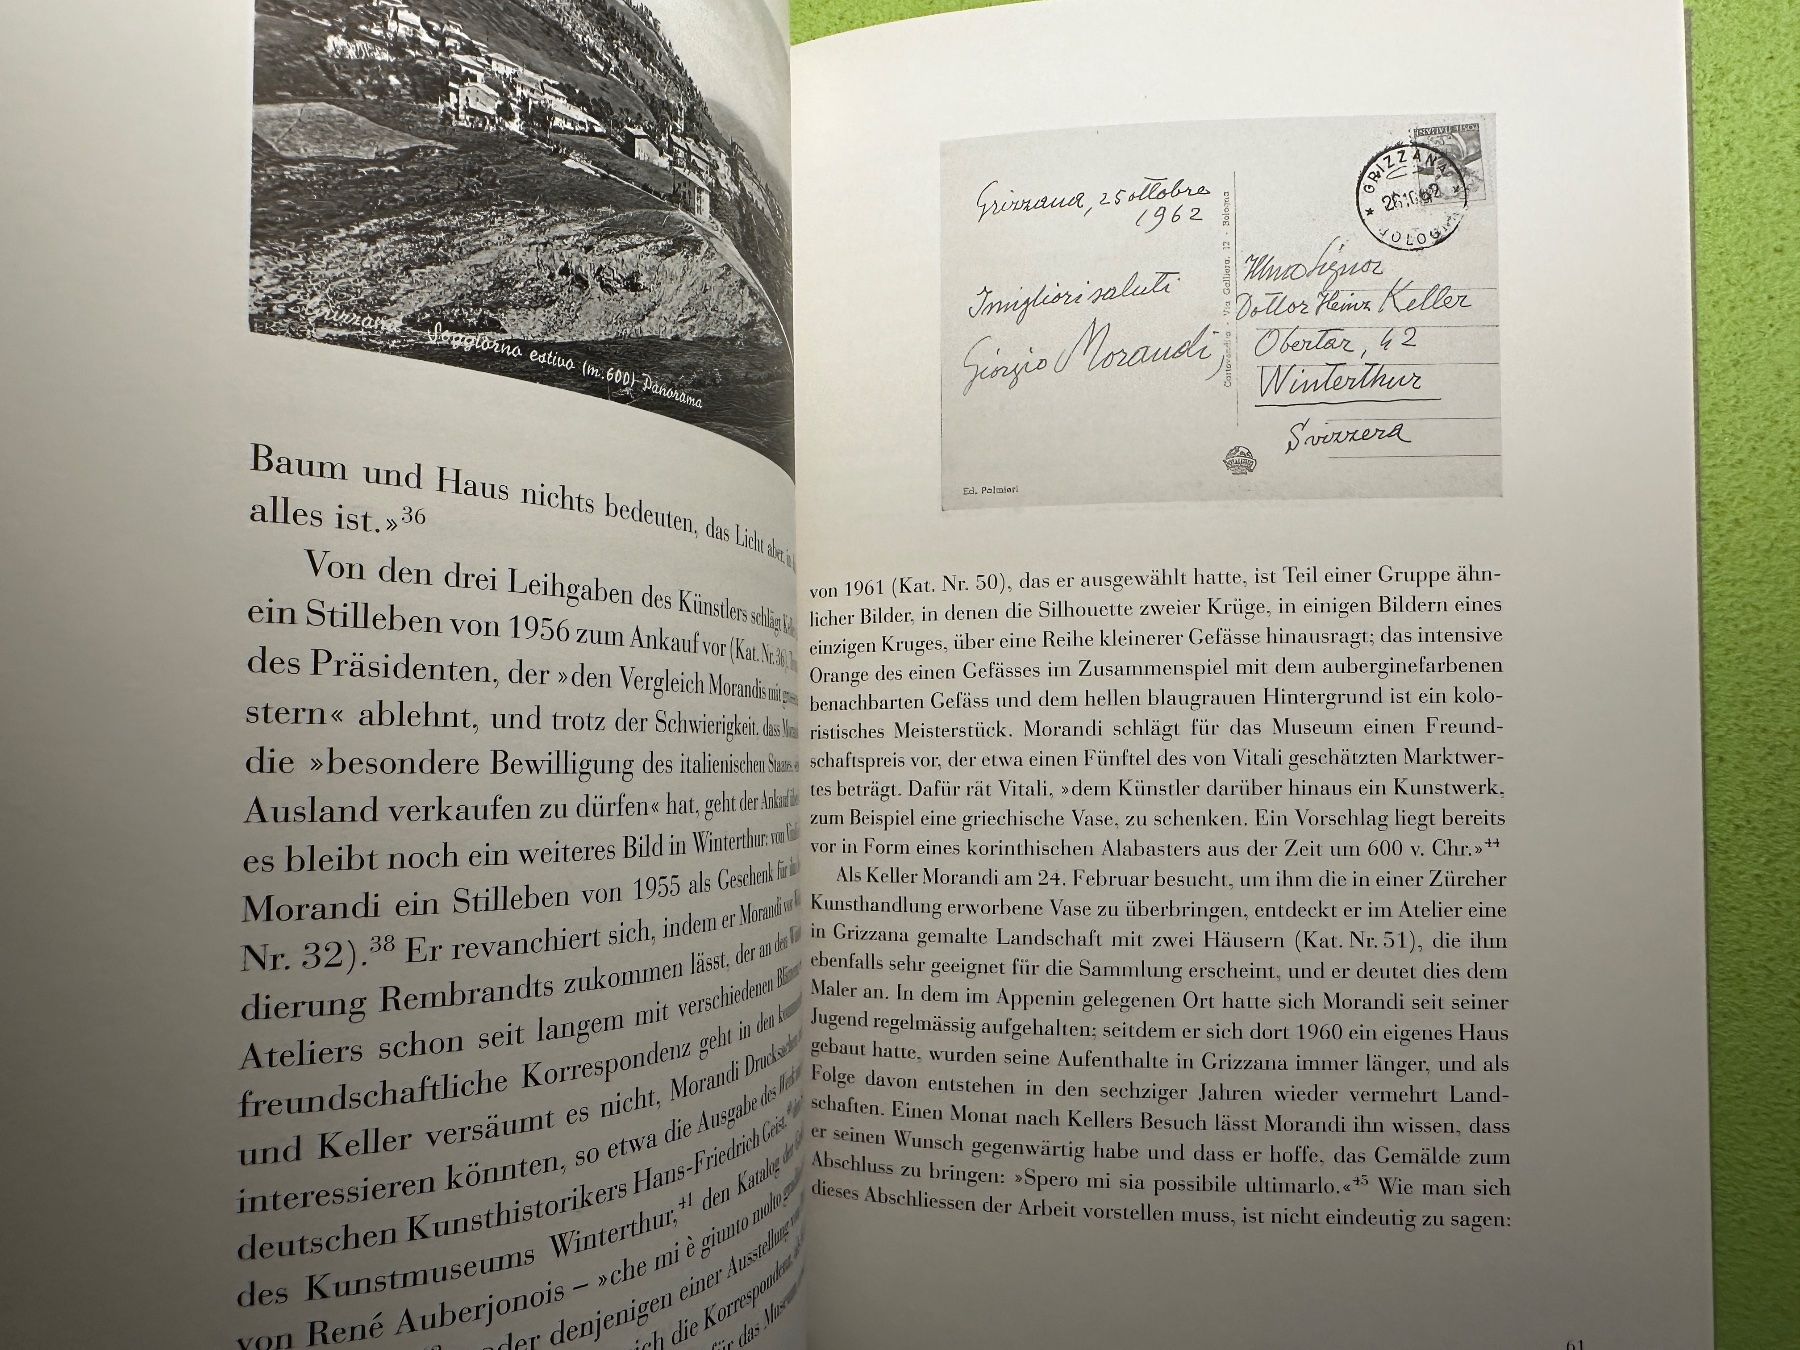 Grizzana Soggiorno estivo (m. 600) Panorama
Baum und Haus nichts bedeuten, das Licht aber
alles ist.»³⁶
Von den drei Leihgaben des Künstlers schlägt
ein Stilleben von 1956 zum Ankauf vor (Kat. Nr. 36).
des Präsidenten, der »den Vergleich Morandis mit
stern« ablehnt, und trotz der Schwierigkeit, dass
die »besondere Bewilligung des italienischen Staates,
Ausland verkaufen zu dürfen« hat, geht der Ankauf
es bleibt noch ein weiteres Bild in Winterthur: von
Morandi ein Stilleben von 1955 als Geschenk für
Nr. 32).³⁸ Er revanchiert sich, indem er Morandi
dierung Rembrandts zukommen lässt, der an den
Ateliers schon seit langem mit verschiedenen
freundschaftliche Korrespondenz geht in den
und Keller versäumt es nicht, Morandi
interessieren könnten, so etwa die Ausgabe des
deutschen Kunsthistorikers Hans-Friedrich Geist,
des Kunstmuseums Winterthur,⁴¹ den Katalog der
von René Auberjonois – »che mi è giunto molto
oder denjenigen einer Ausstellung
die Korrespondenz,
für das
Grizzana, 25 ottobre
1962
I migliori saluti
Giorgio Morandi,
Ed. Palmieri
Via Galliera, 12 - Bologna
POSTE ITALIANE
GRIZZANA
26.10.62
BOLOGNA
Illmo Signor
Dottor Heinz Keller
Obertor, 42
Winterthur
Svizzera
von 1961 (Kat. Nr. 50), das er ausgewählt hatte, ist Teil einer Gruppe ähn-
licher Bilder, in denen die Silhouette zweier Krüge, in einigen Bildern eines
einzigen Kruges, über eine Reihe kleinerer Gefässe hinausragt; das intensive
Orange des einen Gefässes im Zusammenspiel mit dem auberginefarbenen
benachbarten Gefäss und dem hellen blaugrauen Hintergrund ist ein kolo-
ristisches Meisterstück. Morandi schlägt für das Museum einen Freund-
schaftspreis vor, der etwa einen Fünftel des von Vitali geschätzten Marktwer-
tes beträgt. Dafür rät Vitali, »dem Künstler darüber hinaus ein Kunstwerk,
zum Beispiel eine griechische Vase, zu schenken. Ein Vorschlag liegt bereits
vor in Form eines korinthischen Alabasters aus der Zeit um 600 v. Chr.»⁴⁴
Als Keller Morandi am 24. Februar besucht, um ihm die in einer Zürcher
Kunsthandlung erworbene Vase zu überbringen, entdeckt er im Atelier eine
in Grizzana gemalte Landschaft mit zwei Häusern (Kat. Nr. 51), die ihm
ebenfalls sehr geeignet für die Sammlung erscheint, und er deutet dies dem
Maler an. In dem im Appenin gelegenen Ort hatte sich Morandi seit seiner
Jugend regelmässig aufgehalten; seitdem er sich dort 1960 ein eigenes Haus
gebaut hatte, wurden seine Aufenthalte in Grizzana immer länger, und als
Folge davon entstehen in den sechziger Jahren wieder vermehrt Land-
schaften. Einen Monat nach Kellers Besuch lässt Morandi ihn wissen, dass
er seinen Wunsch gegenwärtig habe und dass er hoffe, das Gemälde zum
Abschluss zu bringen: »Spero mi sia possibile ultimarlo.«⁴⁵ Wie man sich
dieses Abschliessen der Arbeit vorstellen muss, ist nicht eindeutig zu sagen:
61